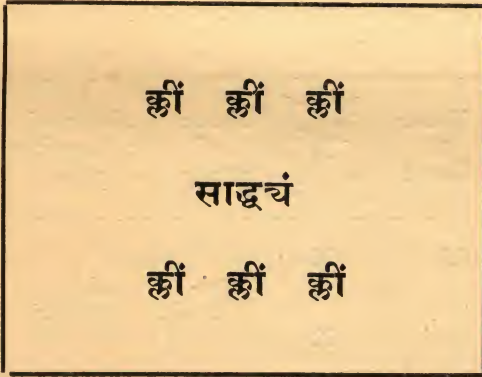 क्लीं क्लीं क्लीं
साद्ध्यं
क्लीं क्लीं क्लीं